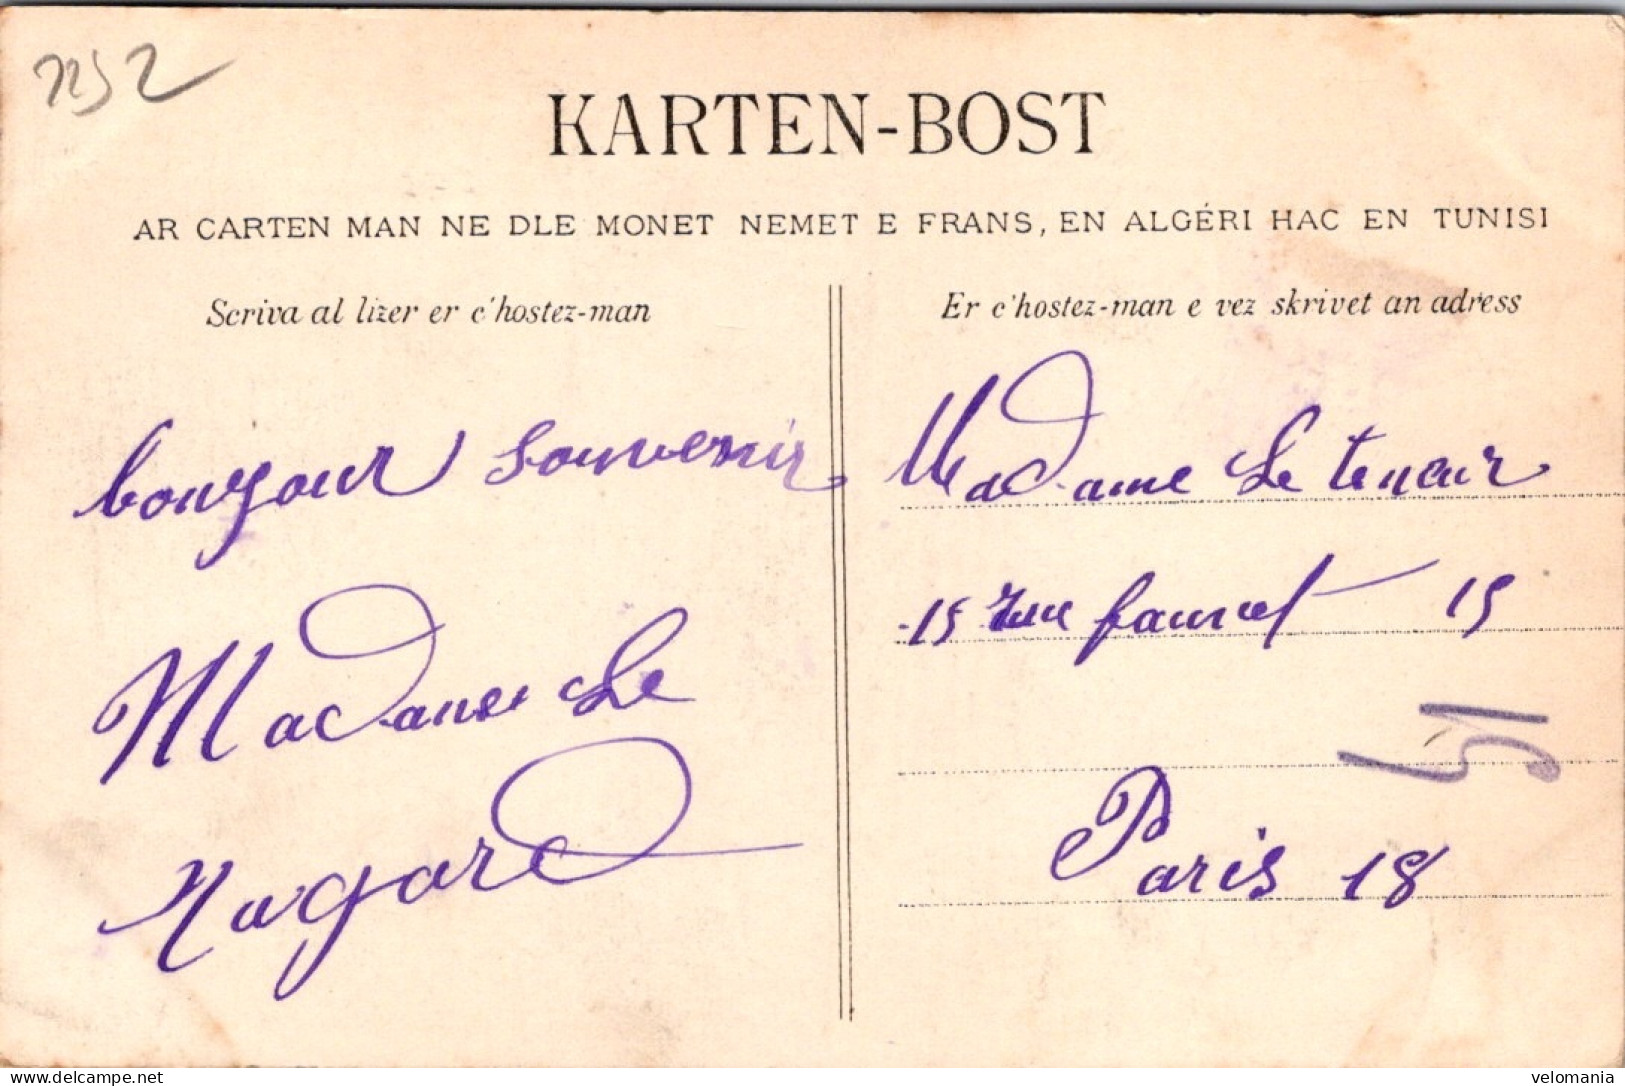 7252
KARTEN-BOST
AR CARTEN MAN NE DLE MONET NEMET E FRANS, EN ALGÉRI HAC EN TUNISI
Scriva al lizer er c'hostez-man
bonjour souvenir
Madame Le
Nagard
Er c'hostez-man e vez skrivet an adress
Madame Le tenour
15 rue fauvet 15
51
Paris 18
delcampe.net
velomania